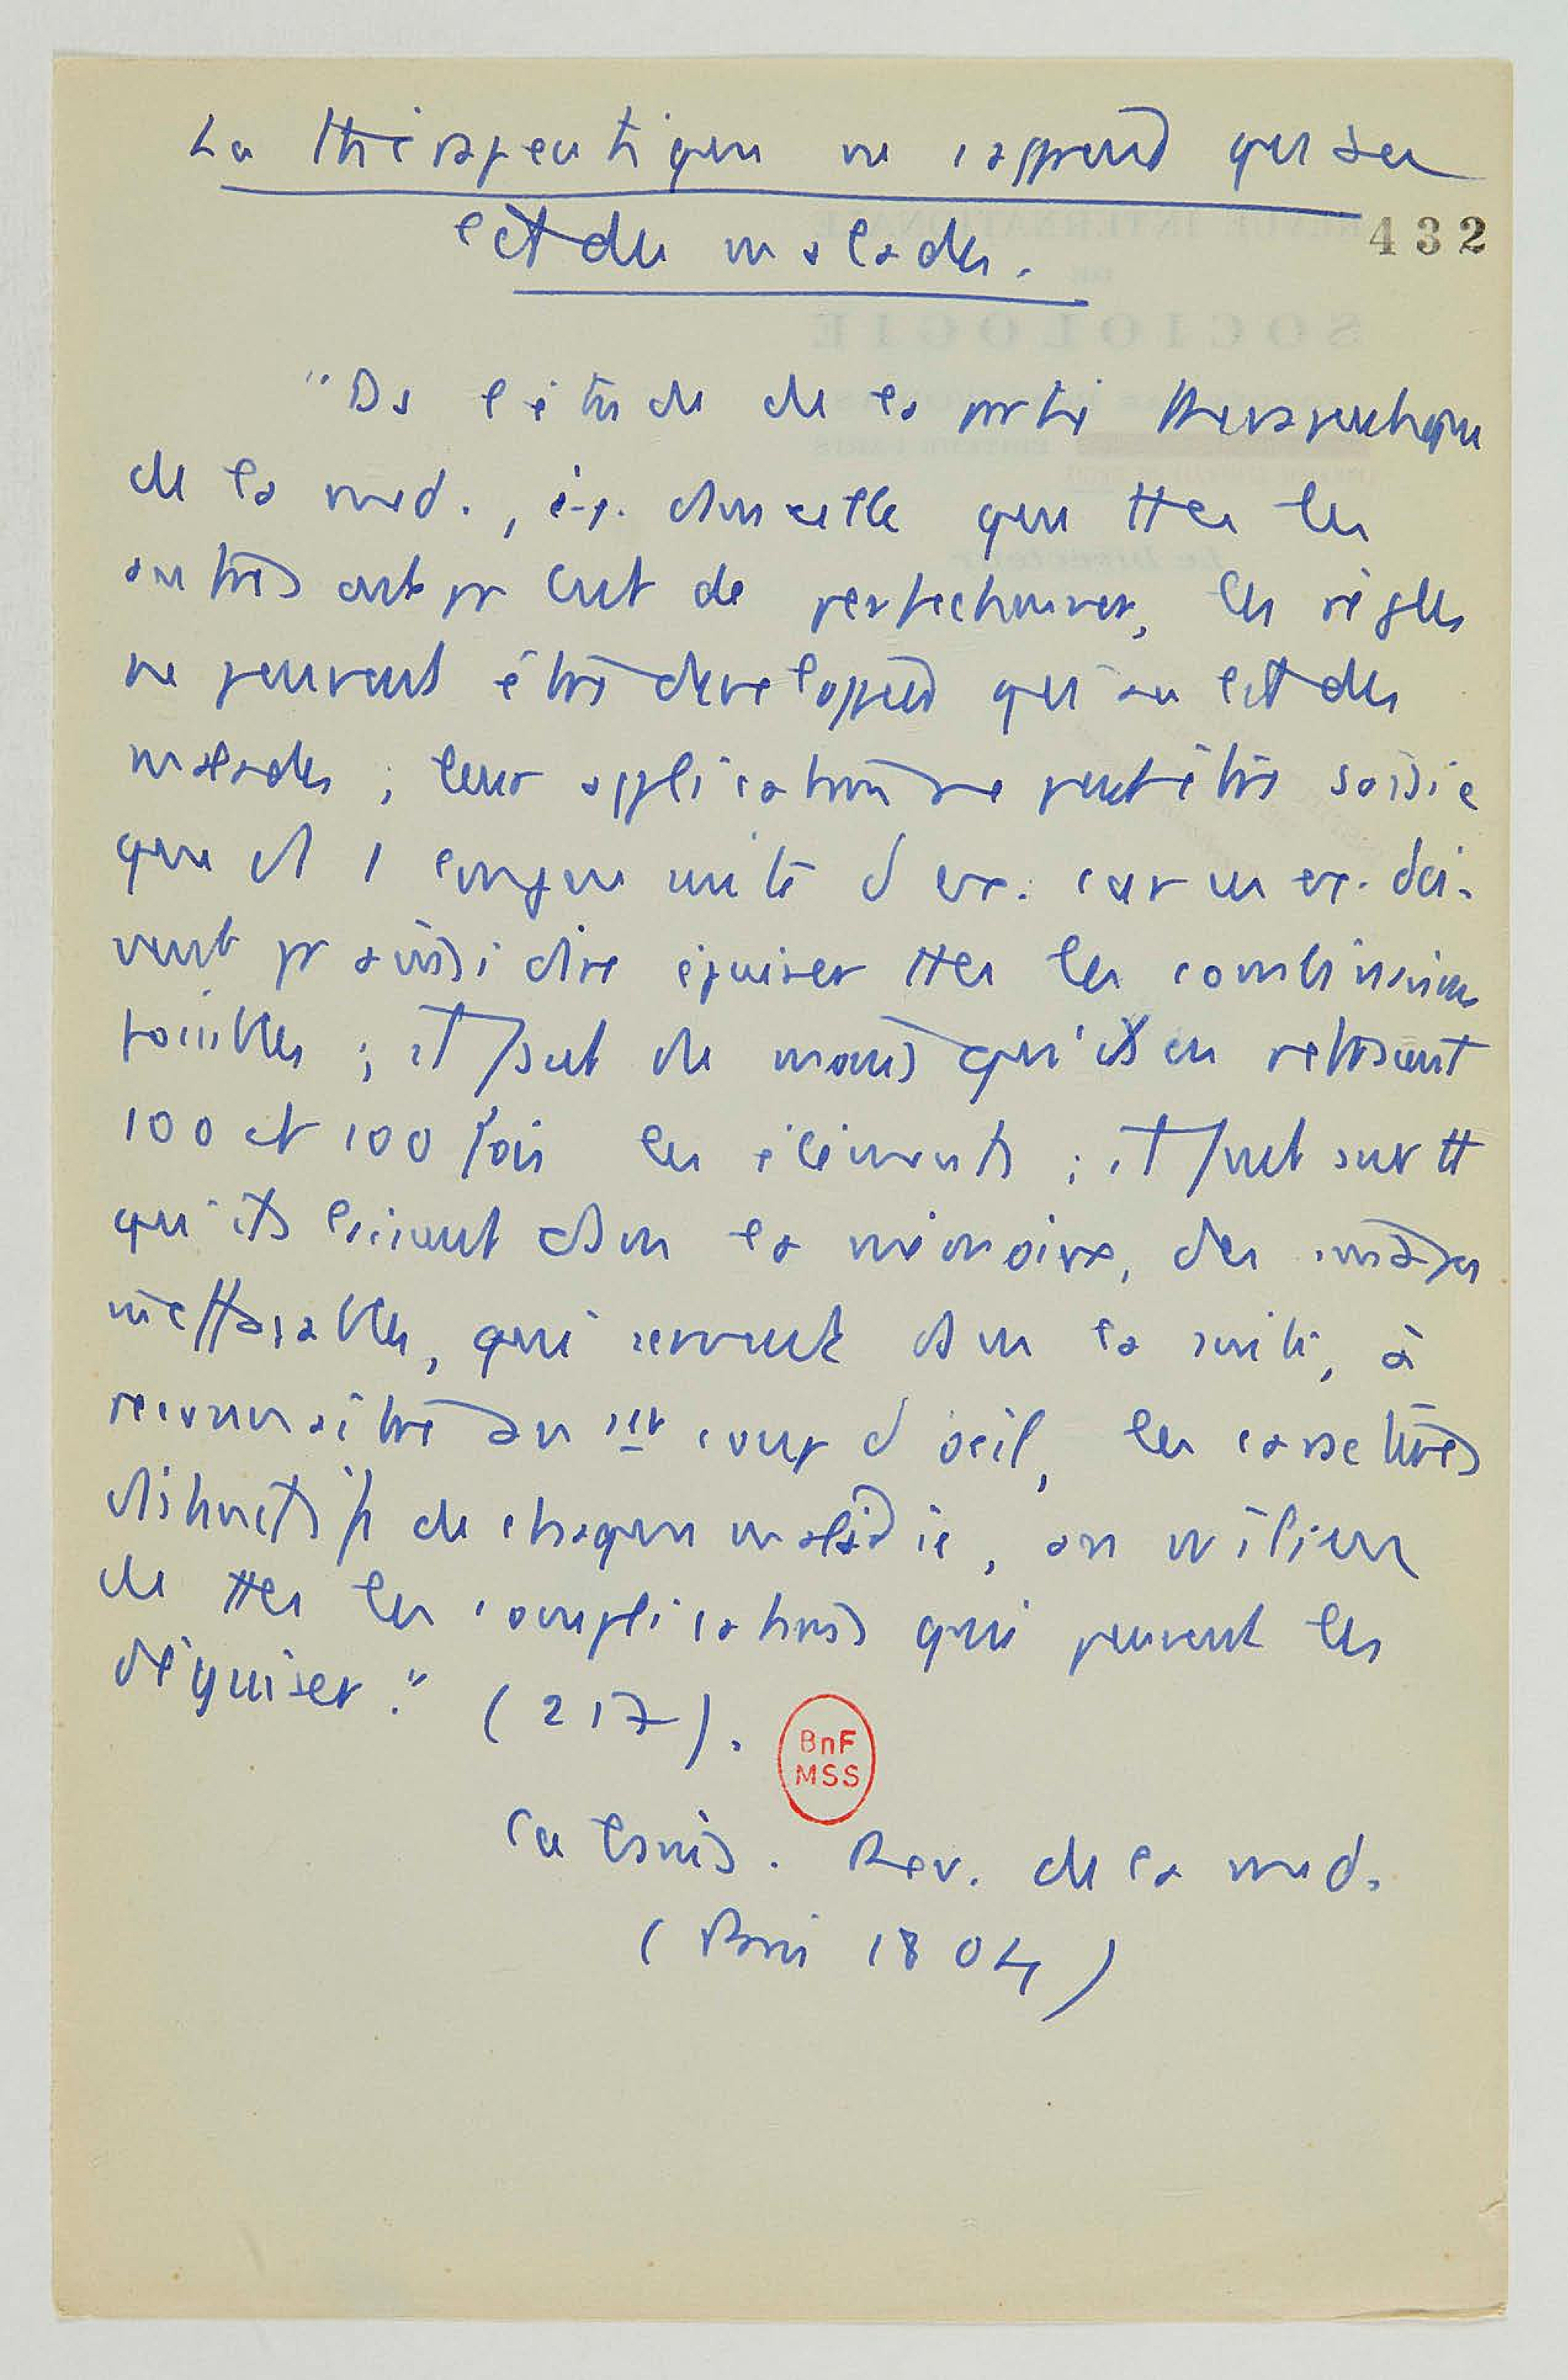 La thérapeutique ne s'apprend qu'au
432
lit des malades.
"Ds l'étude de la partie thérapeutique
de la med., i.e. dans celle que ttes les
autres ont pr but de perfectionner, les règles
ne peuvent être developpées qu'au lit des
malades ; leur application ne peut être saisie
que ds 1 longue suite d'ex. car ces ex. doi-
vent pr ainsi dire épuiser ttes les combinaisons
possibles ; il faut du moins qu'ils en retracent
100 et 100 fois les éléments ; il faut surtt
qu'ils laissent dans la mémoire, des images
ineffaçables, qui servent dans la suite, à
reconnaître au 1er coup d'oeil, les caractères
distinctifs de chaque maladie, au milieu
de ttes les complications qui peuvent les
déguiser." (217).
BnF
MSS
Cabanis. Rev. de la med.
(Paris 1804)